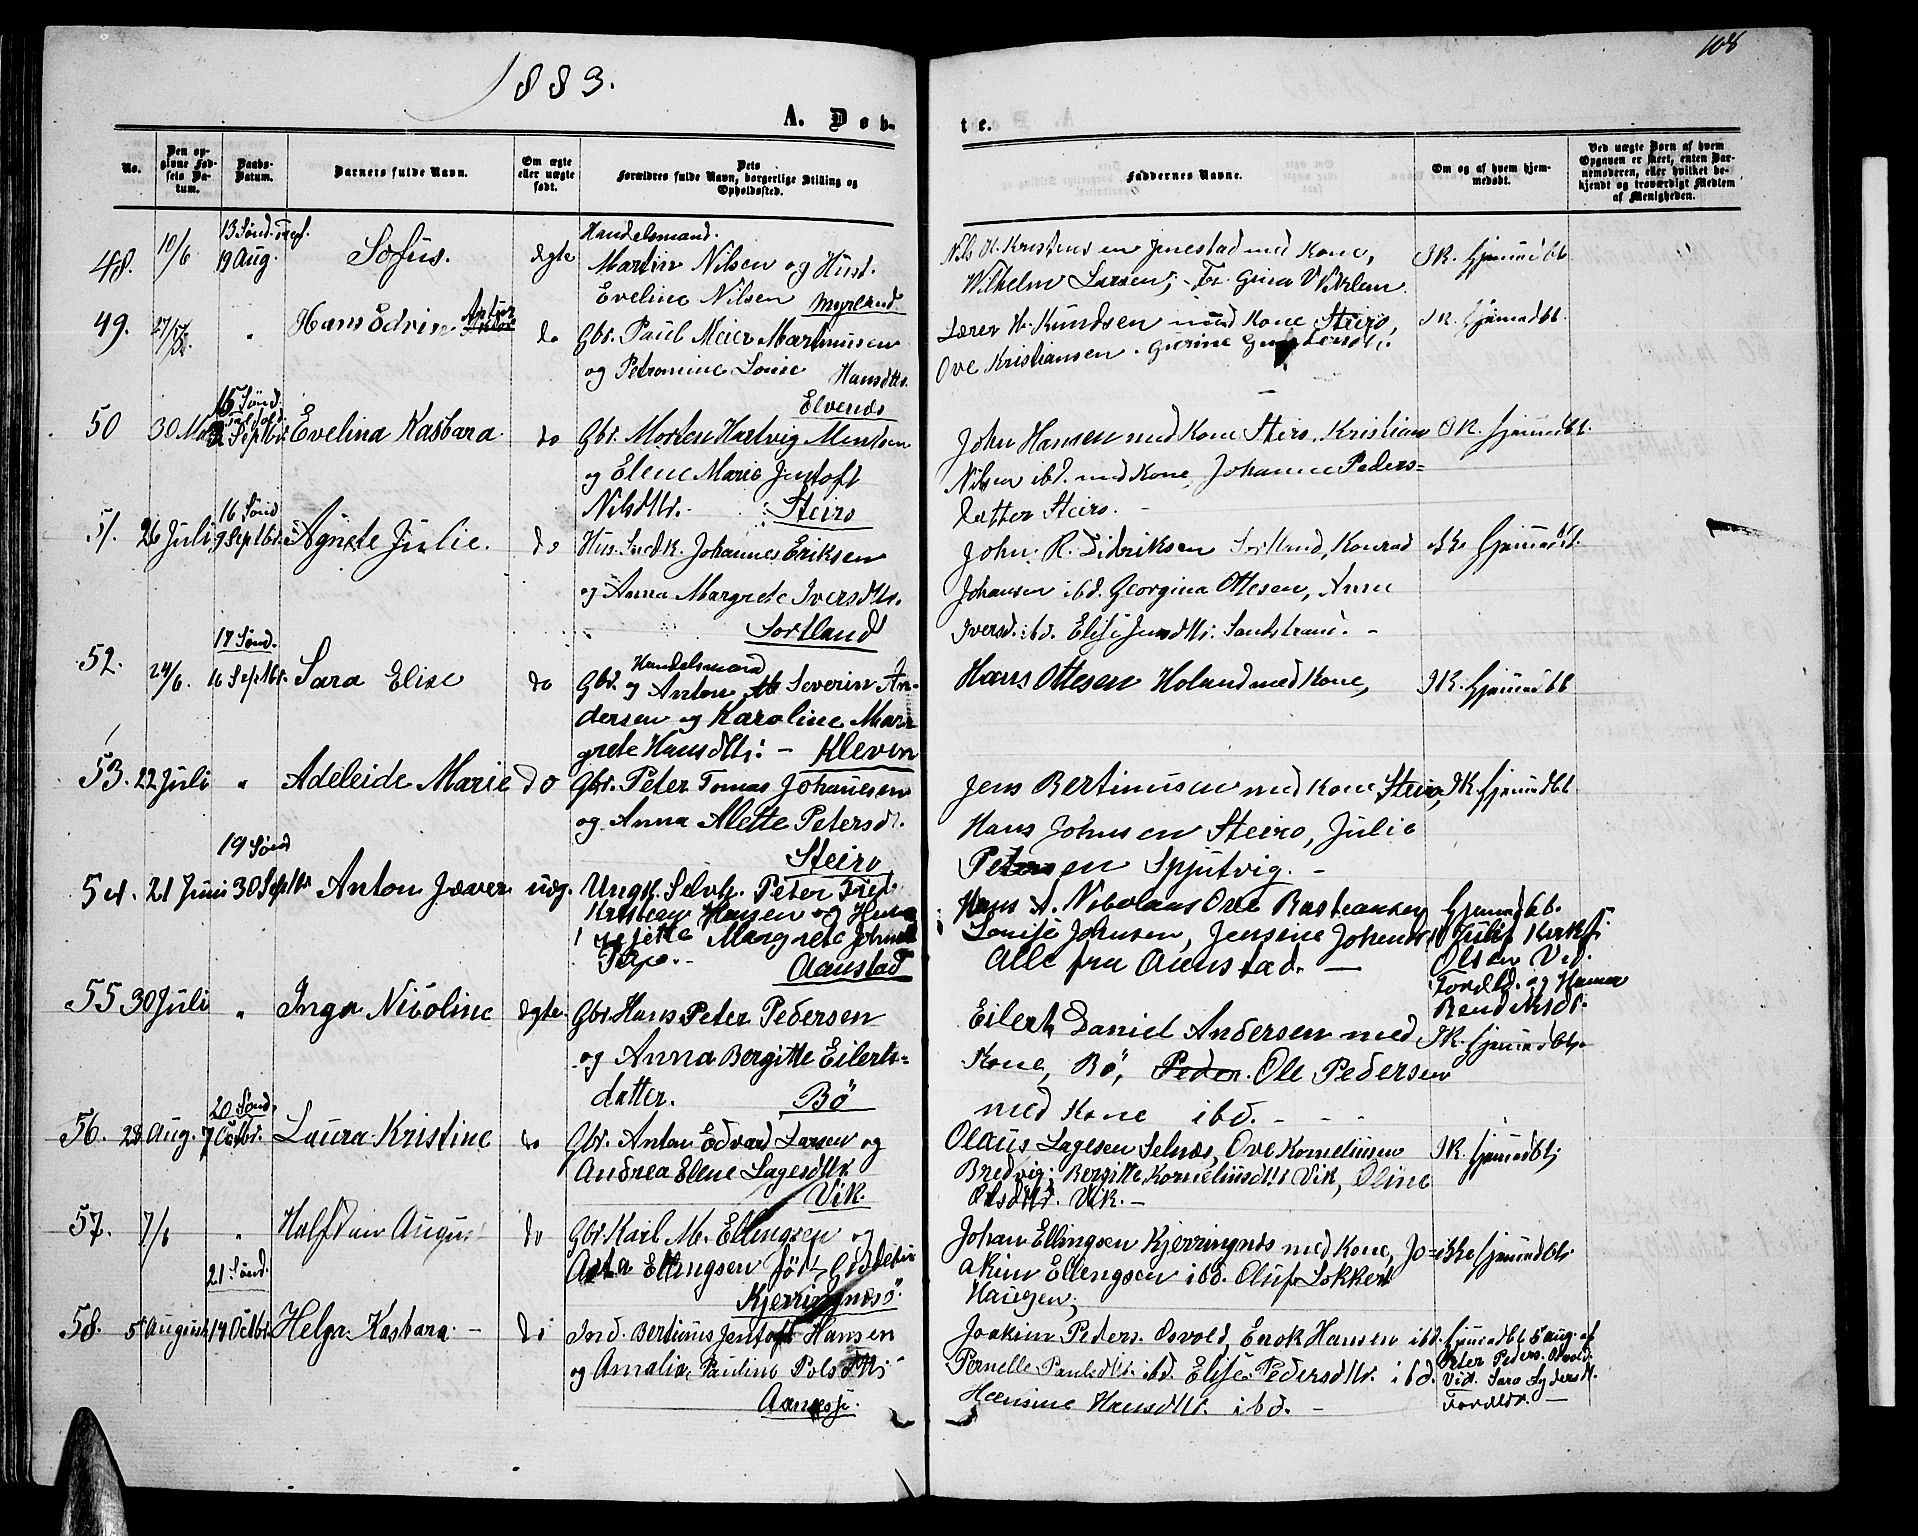 108
1883.
A. Døb-
te.
No.
Den op-
givne Fød-
sels Da-
tum.
Daabs-
Datum.
Barnets fulde Navn.
Om ægte
eller uægte
født.
Dets
Forældres fulde Navn, borgerlige Stilling og
Opholdssted.
Faddernes Navne.
Om og af hvem hjem-
medøbt.
Ved uægte Børn af hvem
Opgaven er skeet, enten Bar-
nemoderen, eller hvilket be-
kjendt og troværdigt Medlem
af Menigheden.
48. 10/6 13 Sønd. Tref.
19 Aug. Sofus. ægte
Handelsmand.
Martin Nilsen og Hust.
Eveline Nilsen Myrland
Nils H. Kristensen Jenestad med Kone,
Wilhelm Larsen, Fr. Grina
IK. Hjemmdbt
49. 27/5 82 " Hans Edvin Antor do
Gbr. Paul Meier Martinusen
og Petromine Lovise Hansdttr.
Elvenæs
Lærer H. Knudsen med Kone Steiro,
Ove Kristiansen.
IK. Hjemmdbt.
50 30 Mai 15 Sønd.
2 Septbr. Evelina Kasbara do
Gbr. Morten Hartvig Mentsen
og Elene Marie Jentoft
Nilsdttr. - Steiro
John Hansen med Kone Steiro, Kristian
Nilsen ibd. med Kone, Johanne Peders=
datter Steiro. -
IK. Hjemmdbt.
51. 26 Juli 16 Sønd
9 Septbr. Agnete Julie. do
Hus. Snedk. Johannes Eriksen
og Anna Margrete Iversdttr.
Sortland
John. R. Didriksen Sortland, Konrad
Johansen ibd. Georgina Ottesen, Anne
Iversd. ibd. Elise Sandstrand. -
ikke Hjemmdbt.
52. 24/6. 17 Sønd.
16 Septbr. Sara Elise do
Handelsmand
Gbr. og Anton Severin An-
dersen og Karoline Mar-
grete Hansdttr. - Kleven
Hans Ottesen Holand med Kone,
IK. Hjemmdbt
53. 22 Juli " Adeleide Marie do
Gbr. Peter Tomas Johannesen
og Anna Alette Petersdt.
Steiro
Jens Bertinusen med Kone Steiro,
Hans Johnsen Steiro, Julie
Petersen Spjutvig. -
IK. Hjemmdbt
54. 21 Juni 19 Sønd
30 Septbr Anton Jæver uæg.
Ungk. Selvh. Peter Fred.
Kristean Hansen og
Josette Margrete Johns
Pige. - Aanstad
Hans A. Nikolaus Ove Basteansen
Lovise Johnsen, Jensine Johans
Alle fra Aanstad. -
Hjemmdbt.
Kirkes.
Olsen Vid.
Foreld. og Hanna
Bendiksdt.
55 30 Juli " Inga Nicoline ægte
Gbr. Hans Peter Pedersen
og Anna Bergitte Eilerts=
datter. Bø
Eilert Daniel Andersen med
Kone, Bø, Peder. Ole Pedersen
med Kone ibd. -
IK. Hjemmdbt.
56. 28 Aug. 20 Sønd.
7 Octbr. Laura Kristine do
Gbr. Anton Edvard Larsen og
Andrea Elene Lagesdttr.
Vik.
Olaus Lagesen Selnæs, Ove Korneliusen
Bredvig, Bergitte Korneliusdttr Vik, Oline
Olsdttr. Vik. -
IK. Hjemmdbt
57. 7/6 " Halfdan August do
Gbr. Karl M. Ellingsen og
Asta Ellingsen født
Kjerringnesø
Johan Ellingsen Kjerringnæs med Kone, Jo=
akim Ellengsen ibd. Oluf Lokkert
Haugen,
ikke Hjemmdbt.
58. 5 August 21 Sønd.
14 Octbr. Helga Kasbara. - do
Ind. Bertinus Jentoft Hansen
og Amalia Pauline Polsdttr
Joakim Peders. Osvold, Enok Hansen ibd.
Pernelle Paulsdttr. ibd. Elise Pedersdttr. ibd.
Hansine Hansdttr. ibd. -
Hjemmdbt 5 Aug. af
Peter Peders. Osvold.
Vid. Sara
Foreldr. -